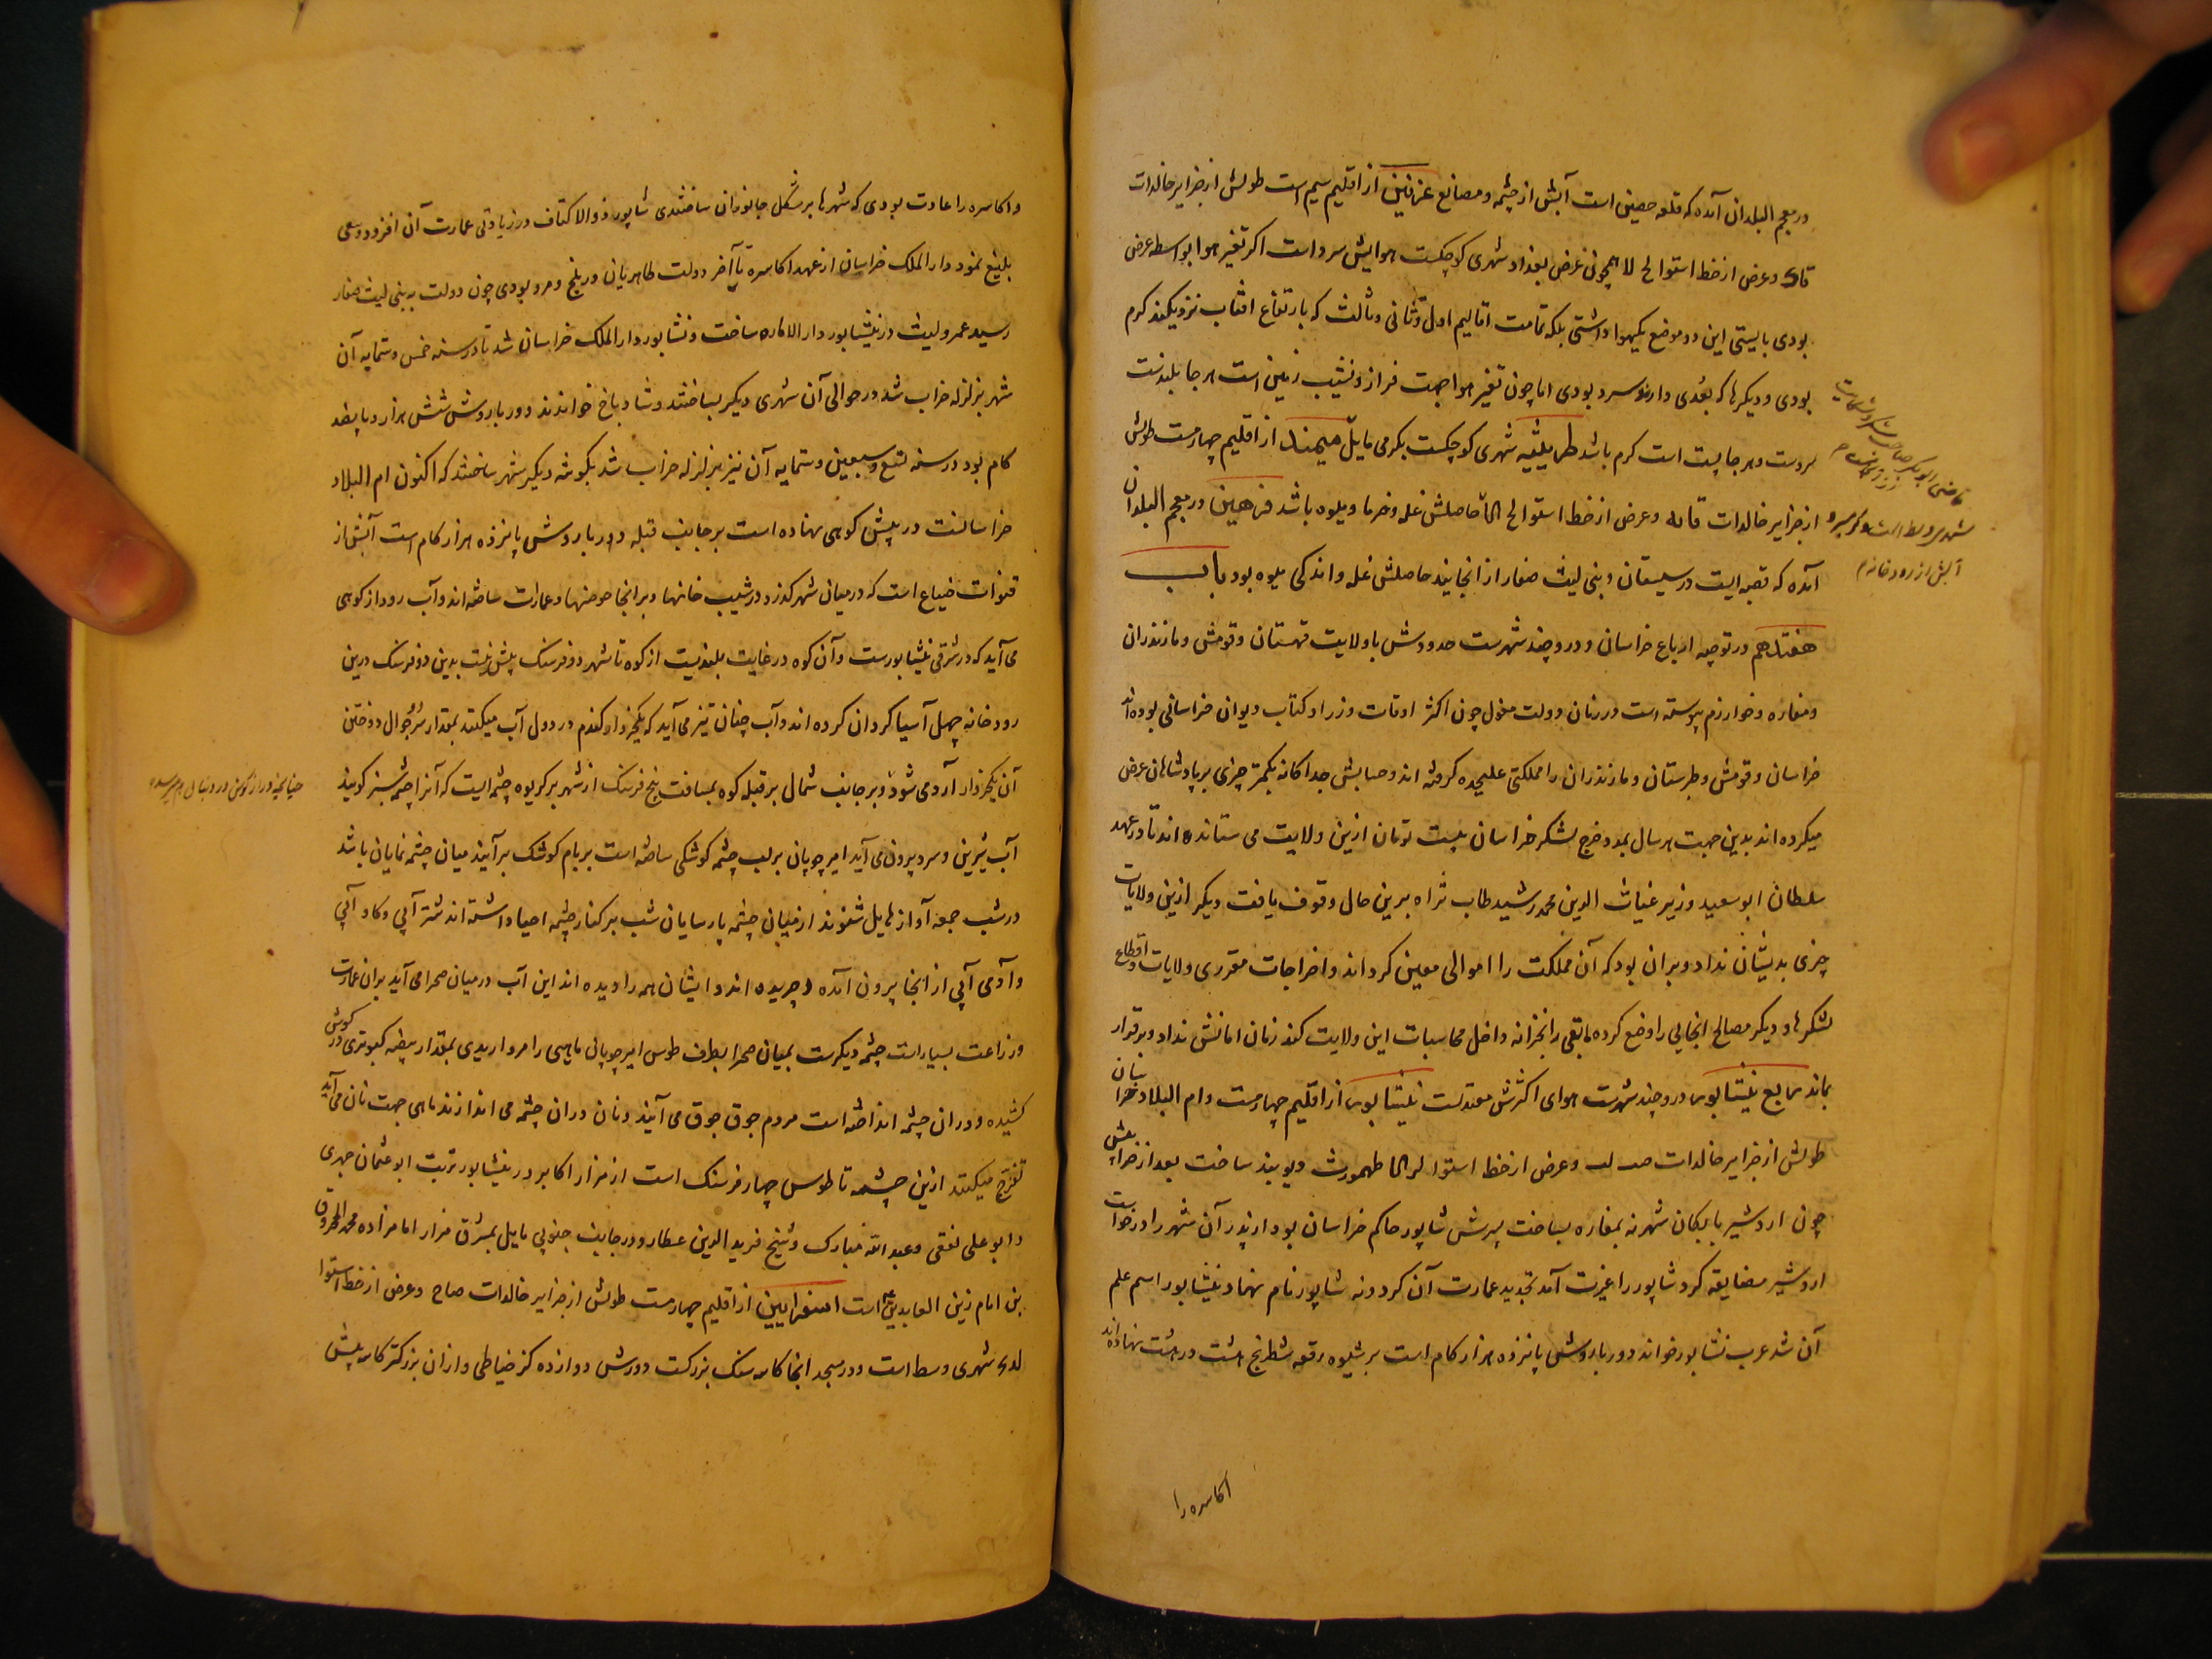 در معجم البلدان آمده که قلعه حصین است آبش از چشمه و مصانع غزنین از اقلیم سیم است طولش از جزایر خالدات
و عرض از خط استوا لح لا همچون عرض بغداد شهری کوچکست هوایش سرد است اکر تغیر هوا بواسطه عرض
بودی بایستی این دو موضع یکهوا داشتی بلکه تمامت اقالیم اول و ثانی و ثالث که بارتفاع افتاب نزدیکند کرم
بودی و دیکرها که بعدی دارند سرد بودی اما چون تغیر هوا جهت فراز و نشیب زمین است هر جا بلندست
سردست و هر جا پست است کرم باشد شهری کوچکست بکرمی مایل میمند از اقلیم چهارمست طولش
از جزایر خالدات و عرض از خط استوا حاصلش غله و خرما و میوه باشد فرهین در معجم البلدان
آمده که قصبه ایست در سیستان و بنی لیث صفار از انجایند حاصلش غله و اندکی میوه بود باب
هفتدهم در توجیه ارباع خراسان و درو چند شهرست حدودش با ولایت قهستان و قومش و مازندران
و مفازه و خوارزم پیوسته است در زمان دولت مغول چون اکثر اوقات وزرا و کتاب دیوان خراسانی بوده اند
خراسان و قومش و طبرستان و مازندران را مملکتی علیحده کرفته اند و حسابش جداکانه بکمتر چیزی بر پادشاهان عرض
میکرده اند بدین جهت هر سال بمدد خرج لشکر خراسان بیست تومان ازین ولایت می ستانده اند تا در عهد
سلطان ابو سعید وزیر غیاث الدین محمد رشید طاب ثراه برین حال وقوف یافت دیکر ازین ولایات
چیزی بدیشان نداد و بران بود که آن مملکت را اموالی معین کرداند و اخراجات مقرری ولایات و اقطاع
لشکرها و دیکر مصالح انجایی را وضع کرده مابقی را بخزانه داخل محاسبات این ولایت کند زمان امانش نداد و برقرار
بماند ربع نیشابور درو چند شهرست هوای اکثرش معتدلست نیشابور از اقلیم چهارمست و ام البلاد خراسان
طولش از جزایر خالدات صب لب و عرض از خط استوا طهمورث دیوبند ساخت بعد از خرابیش
چون اردشیر بابکان شهر نه بمفازه بساخت پسرش شاپور حاکم خراسان بود از پدر آن شهر را درخواست
اردشیر مضایقه کرد شاپور را غیرت آمد تجدید عمارت آن کرد و نه شاپور نام نهاد نیشابور اسم علم
آن شد عرب نشابور خواند دور باروش پانزده هزار کام است بر شیوه رقعه شطرنج هشت در هشت نهاده اند
اکاسره را
و اکاسره را عادت بودی که شهرها بر شکل جانوران ساختندی شاپور ذو الاکتاف در زیادتی عمارت آن افزود و سعی
بلیغ نمود دار الملک خراسان از عهد اکاسره تا آخر دولت طاهریان در بلخ و مرو بودی چون دولت به بنی لیث صفار
رسید عمرو لیث در نیشابور دار الاماره ساخت و نشابور دار الملک خراسان شد تا در سنه خمس و ستمایه آن
شهر بزلزله خراب شد در حوالی آن شهری دیکر بساختند و شادباخ خواندند دور باروش شش هزار و پانصد
کام بود در سنه تسع و سبعین و ستمایه آن نیز بزلزله خراب شد بکوشه دیکر شهر ساختند که اکنون ام البلاد
خراسانست در پیش کوهی نهاده است بر جانب قبله دور باروش پانزده هزار کام است آبش از
قنوات ضیاع است که در میان شهر کذرد و در شیب خانها و بر انجا حوضها و عمارت ساخته اند و آب رود از کوهی
می آید که در شرقی نیشابورست و آن کوه در غایت بلندیست از کوه تا شهر دو فرسنک بیش نیست بدین دو فرسنک درین
رودخانه چهل آسیا کردان کرده اند و آب چنان تیز می آید که یکخروار کندم در دول آب میکنند بمقدار سر جوال دوختن
آن یکخروار آرد می شود و بر جانب شمال بر قبله کوه بمسافت پنج فرسنک از شهر بر کریوه چشمه ایست که آنرا چشمه سبز کویند
آب شیرین و سرد بیرون می آید امیر چوپان بر لب چشمه کوشکی ساخته است بر بام کوشک برآیند میان چشمه نمایان باشد
در شب جمعه آواز هایل شنوند از میان چشمه پارسایان شب بر کنار چشمه احیا داشته اند شتر آبی و کاو آبی
و آدمی آبی از انجا بیرون آمده و چریده اند و ایشان همه را دیده اند این آب در میان صحرا می آید بران عمارت
و زراعت بسیار است چشمه دیکرست بمیان صحرا بطرف طوس امیر چوپانی ماهیی را مرواریدی بمقدار بیضه کبوتری در کوش
کشیده و دران چشمه انداخته است مردم جوق جوق می آیند و نان دران چشمه می اندازند ماهی جهت نان می آید
تفرج میکنند ازین چشمه تا طوس چهار فرسنک است از مزار اکابر در نیشابور تربت ابو عثمان حیری
و ابو علی ثقفی و عبد الله مبارک و شیخ فرید الدین عطار و در جانب جنوبی مایل بمشرق مزار امامزاده محمد المحروق
بن امام زین العابدین است اسفرایین از اقلیم چهارمست طولش از جزایر خالدات و عرض از خط استوا
شهری وسط است و در مسجد انجا کاسه سنک بزرکست دورش دوازده کز خیاطی و ازان بزرکتر کاسه پیش